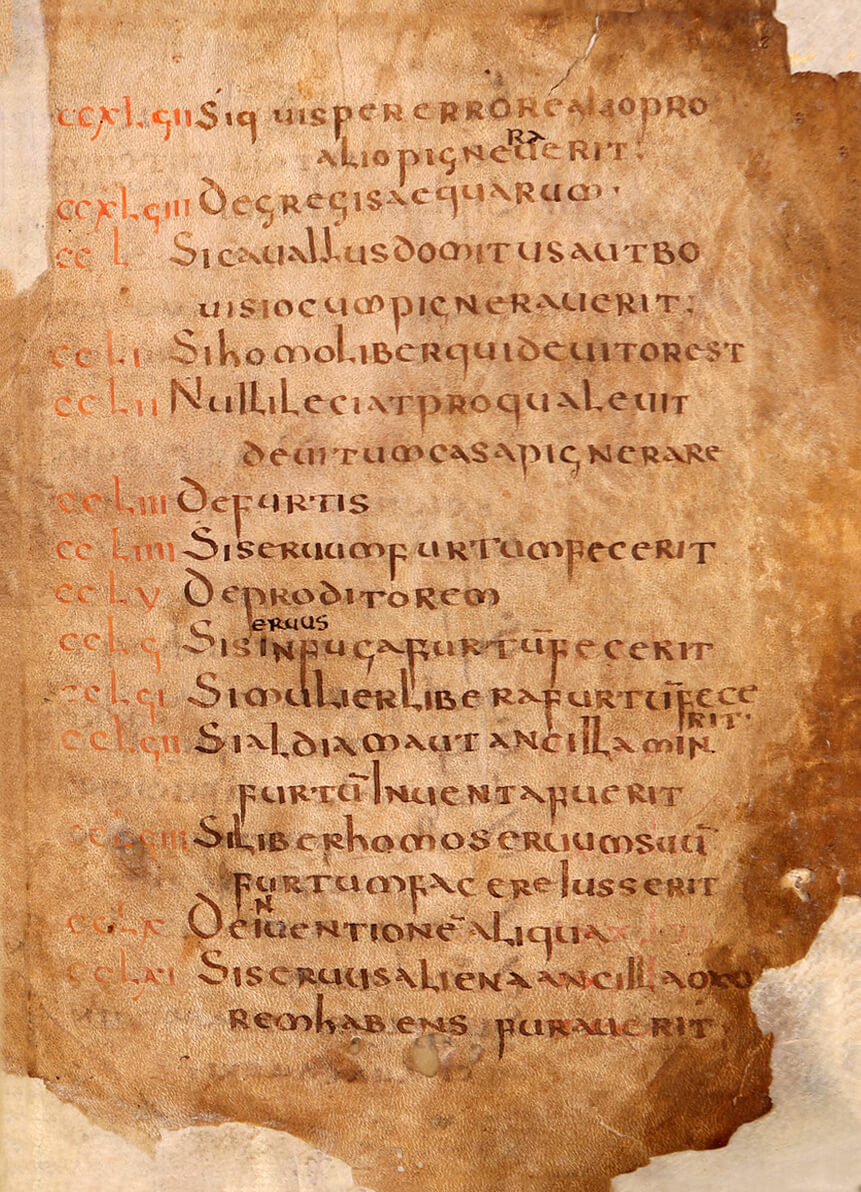 ccxlϛii Siquis per errore alio pro
alio pignerauerit;
ccxlϛiii De gregis aequarum·
ccl Si cauallus domitus aut bo
uis iocum pignerauerit;
ccli Si homo liber qui deuitor est
cclii Nulli leciat pro qualeuit
deuitum casa pignerare
ccliii De furtis
ccliiii Si seruum furtum fecerit
cclv De proditorem
cclϛ Si seruus in fuga furtū fecerit
cclϛi Si mulier libera furtū fece
rit·
cclϛii Si aldia maut ancilla min.
furtū inuenta fuerit
cclϛiii Si liber homo seruum suū
furtum facere iusserit
cclx De inuentionē aliqua
cclxi Si seruus aliena ancilla oxo
rem habens furauerit